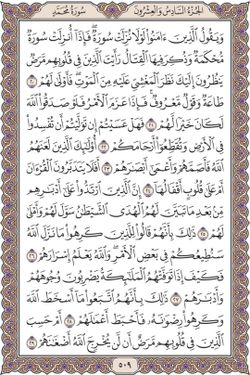 الجزء السادس والعشرون
سورة محمد
وَيَقُولُ الَّذِينَ ءَامَنُوا لَوْلَا نُزِّلَتْ سُورَةٌ فَإِذَا أُنزِلَتْ سُورَةٌ
مُّحْكَمَةٌ وَذُكِرَ فِيهَا الْقِتَالُ رَأَيْتَ الَّذِينَ فِي قُلُوبِهِم مَّرَضٌ
يَنظُرُونَ إِلَيْكَ نَظَرَ الْمَغْشِيِّ عَلَيْهِ مِنَ الْمَوْتِ فَأَوْلَى لَهُمْ ٢٠
طَاعَةٌ وَقَوْلٌ مَّعْرُوفٌ فَإِذَا عَزَمَ الْأَمْرُ فَلَوْ صَدَقُوا اللَّهَ
لَكَانَ خَيْرًا لَّهُمْ ٢١ فَهَلْ عَسَيْتُمْ إِن تَوَلَّيْتُمْ أَن تُفْسِدُوا
فِي الْأَرْضِ وَتُقَطِّعُوا أَرْحَامَكُمْ ٢٢ أُولَٰئِكَ الَّذِينَ لَعَنَهُمُ
اللَّهُ فَأَصَمَّهُمْ وَأَعْمَىٰ أَبْصَارَهُمْ ٢٣ أَفَلَا يَتَدَبَّرُونَ الْقُرْءَانَ
أَمْ عَلَىٰ قُلُوبٍ أَقْفَالُهَا ٢٤ إِنَّ الَّذِينَ ارْتَدُّوا عَلَىٰ أَدْبَارِهِم
مِّن بَعْدِ مَا تَبَيَّنَ لَهُمُ الْهُدَى الشَّيْطَانُ سَوَّلَ لَهُمْ وَأَمْلَىٰ
لَهُمْ ٢٥ ذَٰلِكَ بِأَنَّهُمْ قَالُوا لِلَّذِينَ كَرِهُوا مَا نَزَّلَ اللَّهُ
سَنُطِيعُكُمْ فِي بَعْضِ الْأَمْرِ وَاللَّهُ يَعْلَمُ إِسْرَارَهُمْ ٢٦
فَكَيْفَ إِذَا تَوَفَّتْهُمُ الْمَلَائِكَةُ يَضْرِبُونَ وُجُوهَهُمْ
وَأَدْبَارَهُمْ ٢٧ ذَٰلِكَ بِأَنَّهُمُ اتَّبَعُوا مَا أَسْخَطَ اللَّهَ
وَكَرِهُوا رِضْوَانَهُ فَأَحْبَطَ أَعْمَالَهُمْ ٢٨ أَمْ حَسِبَ
الَّذِينَ فِي قُلُوبِهِم مَّرَضٌ أَن لَّن يُخْرِجَ اللَّهُ أَضْغَانَهُمْ ٢٩
٥٠٩